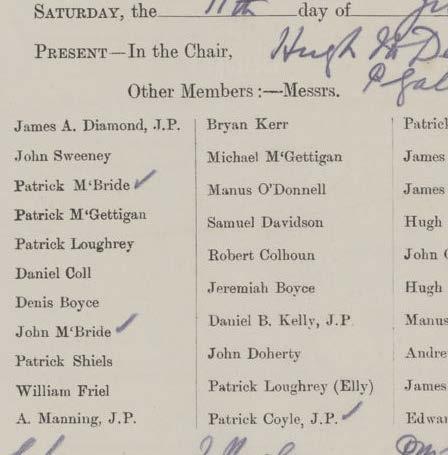 SATURDAY, the 11th day of
PRESENT—In the Chair, Hugh
Other Members:—Messrs.
James A. Diamond, J.P.
John Sweeney
Patrick M'Bride
Patrick M'Gettigan
Patrick Loughrey
Daniel Coll
Denis Boyce
John M'Bride
Patrick Shiels
William Friel
A. Manning, J.P.
Bryan Kerr
Michael M'Gettigan
Manus O'Donnell
Samuel Davidson
Robert Colhoun
Jeremiah Boyce
Daniel B. Kelly, J.P.
John Doherty
Patrick Loughrey (Elly)
Patrick Coyle, J.P.
Patrick
James
James
Hugh
John
Hugh
Manus
Andre
James
Edwar